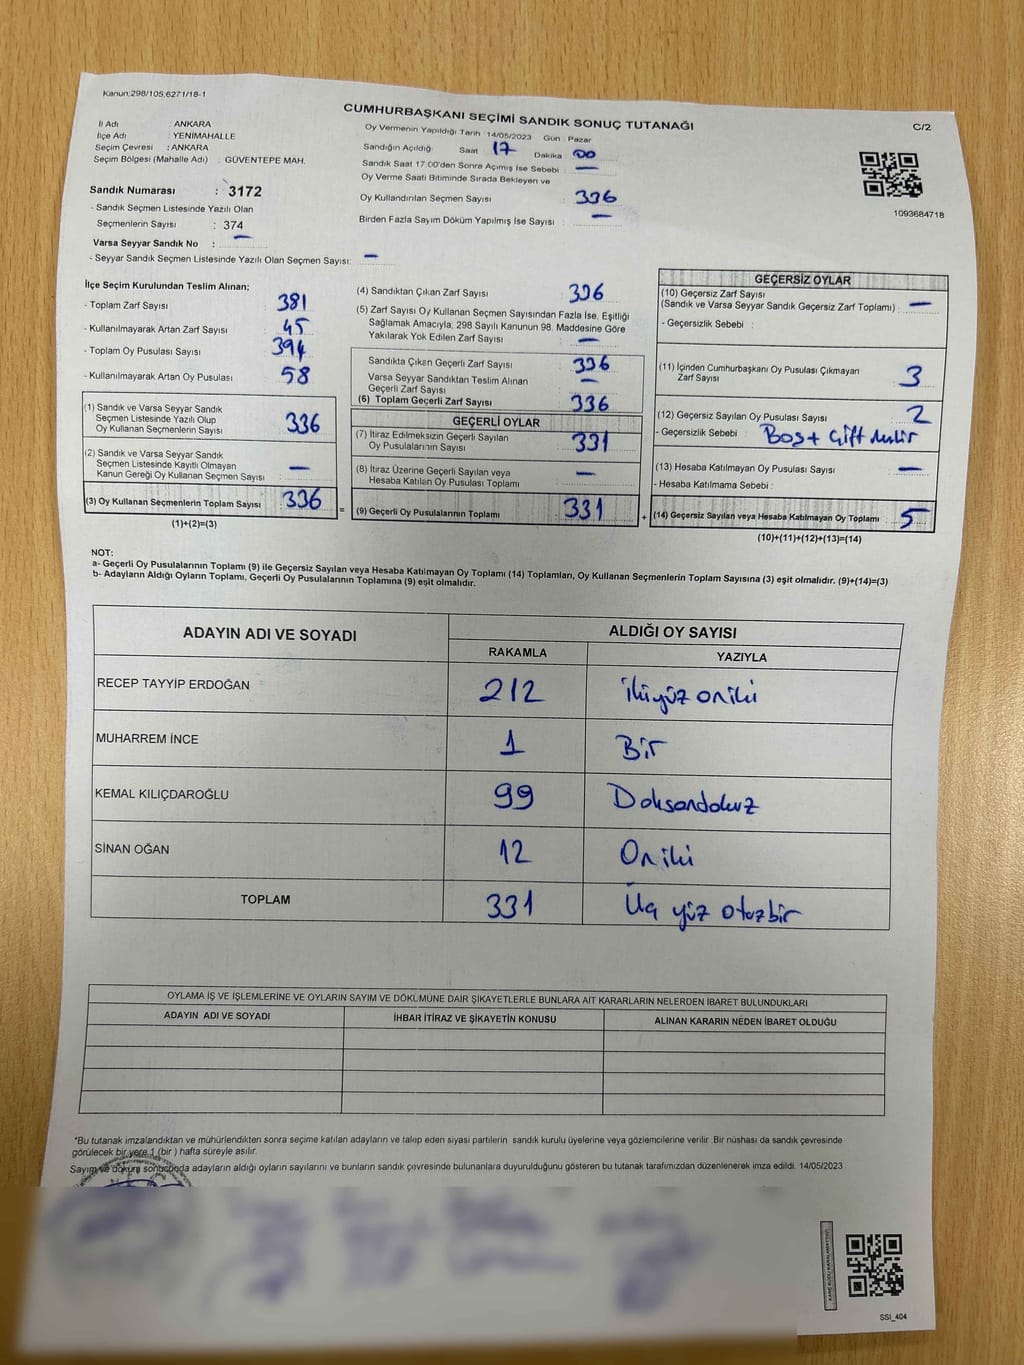 Kanun:298/105,6271/18-1
CUMHURBAŞKANI SEÇİMİ SANDIK SONUÇ TUTANAĞI
C/2
İl Adı : ANKARA
İlçe Adı : YENİMAHALLE
Seçim Çevresi : ANKARA
Seçim Bölgesi (Mahalle Adı) : GÜVENTEPE MAH.
Oy Vermenin Yapıldığı Tarih :14/05/2023 Gün : Pazar
Sandığın Açıldığı Saat : 17 Dakika : 00
Sandık Saat 17:00'den Sonra Açımış İse Sebebi : —
Oy Verme Saati Bitiminde Sırada Bekleyen ve
Oy Kullandırılan Seçmen Sayısı : 336
Birden Fazla Sayım Döküm Yapılmış İse Sayısı : —
1093684718
Sandık Numarası : 3172
- Sandık Seçmen Listesinde Yazılı Olan
Seçmenlerin Sayısı : 374
Varsa Seyyar Sandık No : —
- Seyyar Sandık Seçmen Listesinde Yazılı Olan Seçmen Sayısı: —
İlçe Seçim Kurulundan Teslim Alınan;
- Toplam Zarf Sayısı : 381
- Kullanılmayarak Artan Zarf Sayısı : 45
- Toplam Oy Pusulası Sayısı : 394
- Kullanılmayarak Artan Oy Pusulası : 58
(1) Sandık ve Varsa Seyyar Sandık
Seçmen Listesinde Yazılı Olup
Oy Kullanan Seçmenlerin Sayısı : 336
(2) Sandık ve Varsa Seyyar Sandık
Seçmen Listesinde Kayıtlı Olmayan
Kanun Gereği Oy Kullanan Seçmen Sayısı : —
(3) Oy Kullanan Seçmenlerin Toplam Sayısı : 336
(1)+(2)=(3)
(4) Sandıktan Çıkan Zarf Sayısı : 336
(5) Zarf Sayısı Oy Kullanan Seçmen Sayısından Fazla İse, Eşitliği
Sağlamak Amacıyla, 298 Sayılı Kanunun 98. Maddesine Göre
Yakılarak Yok Edilen Zarf Sayısı : —
Sandıkta Çıkan Geçerli Zarf Sayısı : 336
Varsa Seyyar Sandıktan Teslim Alınan
Geçerli Zarf Sayısı : —
(6) Toplam Geçerli Zarf Sayısı : 336
GEÇERLİ OYLAR
(7) İtiraz Edilmeksizin Geçerli Sayılan
Oy Pusulalarının Sayısı : 331
(8) İtiraz Üzerine Geçerli Sayılan veya
Hesaba Katılan Oy Pusulası Toplamı : —
= (9) Geçerli Oy Pusulalarının Toplamı : 331
GEÇERSİZ OYLAR
(10) Geçersiz Zarf Sayısı
(Sandık ve Varsa Seyyar Sandık Geçersiz Zarf Toplamı) : —
- Geçersizlik Sebebi :
(11) İçinden Cumhurbaşkanı Oy Pusulası Çıkmayan
Zarf Sayısı : 3
(12) Geçersiz Sayılan Oy Pusulası Sayısı : 2
- Geçersizlik Sebebi : Boş + Çift mühür
(13) Hesaba Katılmayan Oy Pusulası Sayısı : —
- Hesaba Katılmama Sebebi :
+ (14) Geçersiz Sayılan veya Hesaba Katılmayan Oy Toplamı : 5
(10)+(11)+(12)+(13)=(14)
NOT:
a- Geçerli Oy Pusulalarının Toplamı (9) ile Geçersiz Sayılan veya Hesaba Katılmayan Oy Toplamı (14) Toplamları, Oy Kullanan Seçmenlerin Toplam Sayısına (3) eşit olmalıdır. (9)+(14)=(3)
b- Adayların Aldığı Oyların Toplamı, Geçerli Oy Pusulalarının Toplamına (9) eşit olmalıdır.
ADAYIN ADI VE SOYADI ALDIĞI OY SAYISI
RAKAMLA YAZIYLA
RECEP TAYYİP ERDOĞAN 212 ikiyüz oniki
MUHARREM İNCE 1 Bir
KEMAL KILIÇDAROĞLU 99 Doksandokuz
SİNAN OĞAN 12 Oniki
TOPLAM 331 Üç yüz otuzbir
OYLAMA İŞ VE İŞLEMLERİNE VE OYLARIN SAYIM VE DÖKÜMÜNE DAİR ŞİKAYETLERLE BUNLARA AİT KARARLARIN NELERDEN İBARET BULUNDUKLARI
ADAYIN ADI VE SOYADI İHBAR İTİRAZ VE ŞİKAYETİN KONUSU ALINAN KARARIN NEDEN İBARET OLDUĞU
*Bu tutanak imzalandıktan ve mühürlendikten sonra seçime katılan adayların ve talep eden siyasi partilerin sandık kurulu üyelerine veya gözlemcilerine verilir .Bir nüshası da sandık çevresinde
görülecek bir yere 1 (bir ) hafta süreyle asılır.
Sayım ve döküm sonucunda adayların aldığı oyların sayılarını ve bunların sandık çevresinde bulunanlara duyurulduğunu gösteren bu tutanak tarafımızdan düzenlenerek imza edildi. 14/05/2023
SSI_404